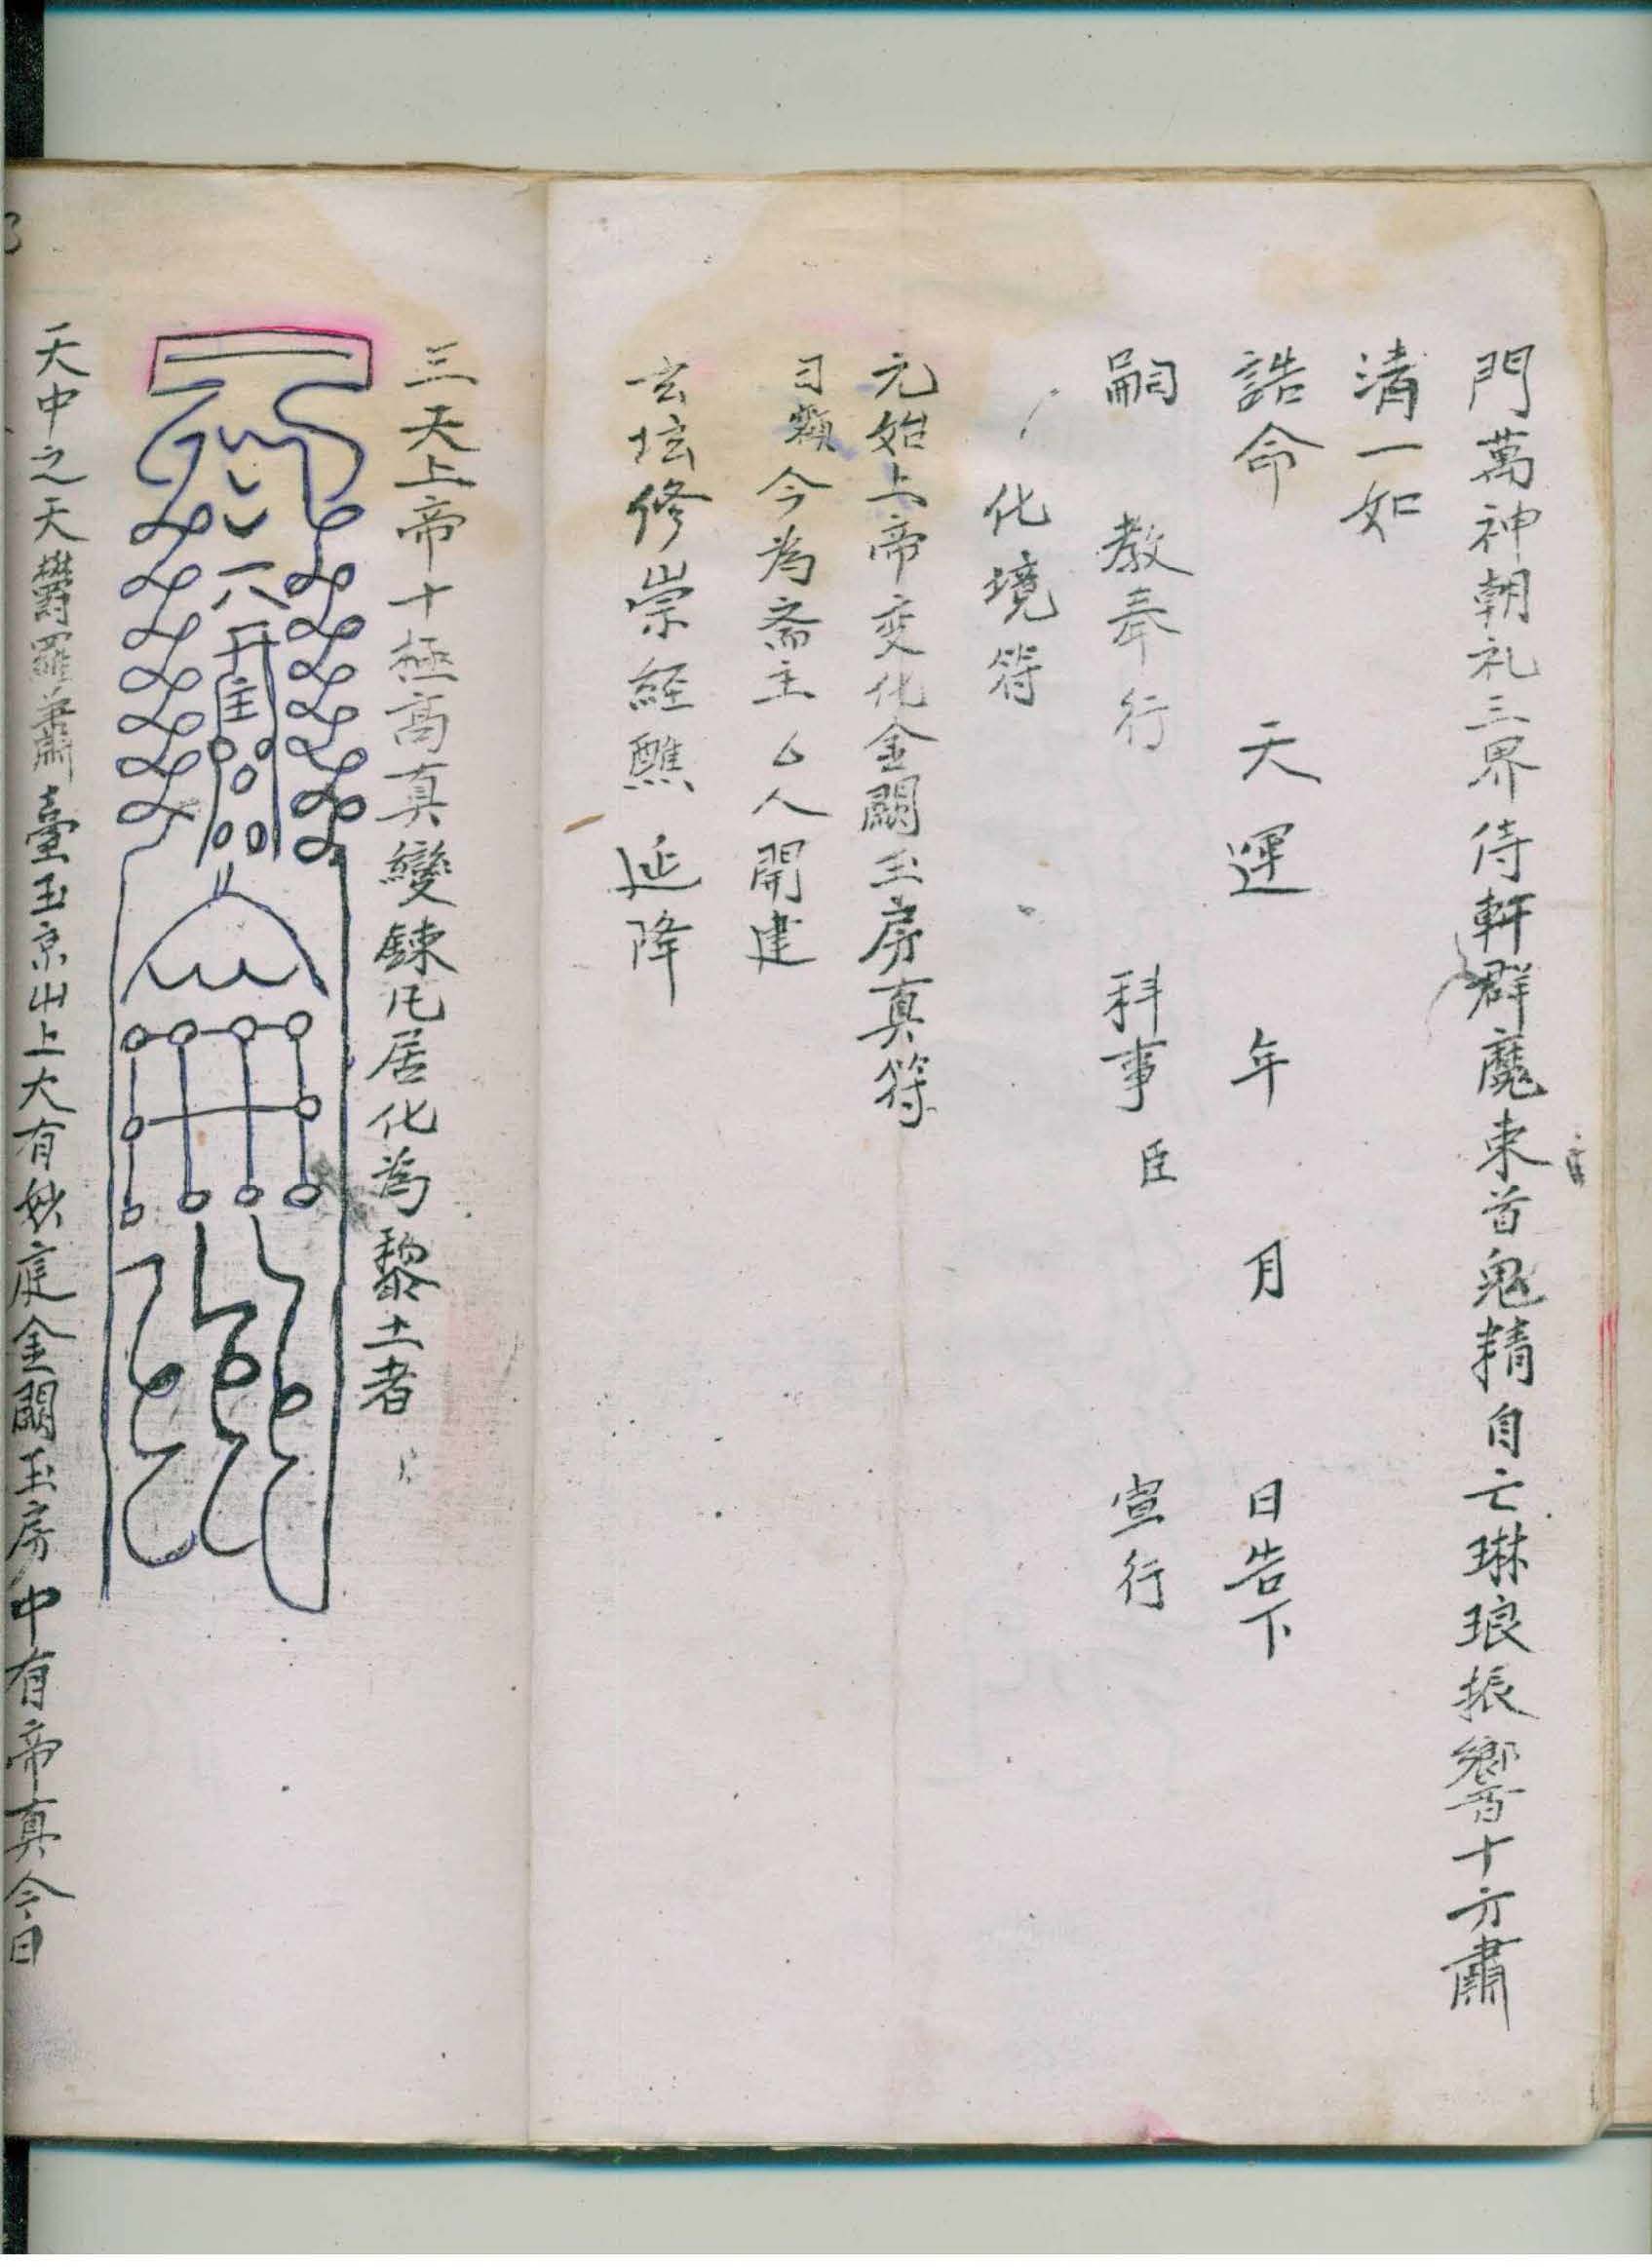 門萬神朝礼三界侍軒群魔束首鬼精自亡琳琅振響十方肅
清一如
誥命 天運 年 月 日告下
嗣 教奉行 科事 臣 宣行
化境符
元始上帝变化金闕玉房真符
今為斋主厶人開建
玄坛修崇経醮 延降
三天上帝十極高真變鍊凡居化為黎土者
天中之天欝羅蕭臺玉京山上大有妙庭金闕玉房中有帝真今日